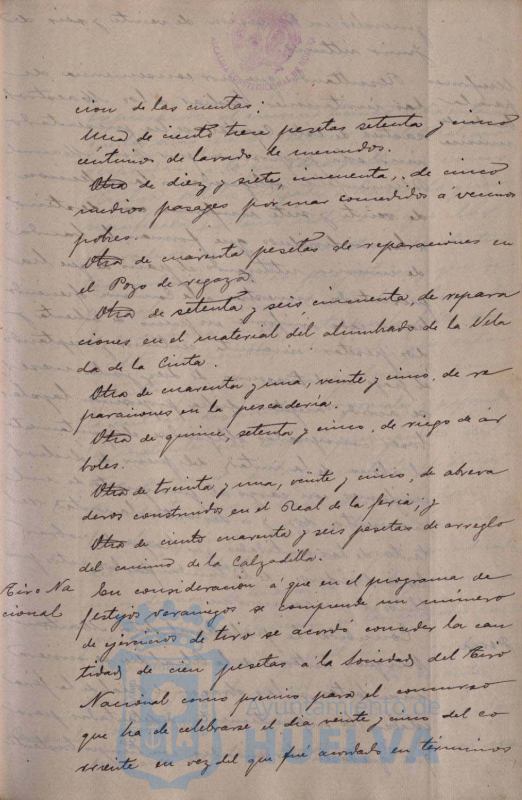 cion de las cuentas:
Una de ciento trece pesetas setenta y cinco
céntimos de lavado de menudos.
Otra de diez y siete, cincuenta, de cinco
medios pasages por mar concedidos á vecinos
pobres.
Otra de cuarenta pesetas de reparaciones en
el Pozo de regazá.
Otra de setenta y seis, cincuenta, de repara
ciones en el material del alumbrado de la Vela
da de la Cinta.
Otra de cuarenta y una, veinte y cinco, de re
paraciones en la pescadería.
Otra de quince, setenta y cinco, de riego de ár
boles.
Otra de treinta y una, veinte y cinco, de abreva
deros construidos en el Real de la feria; y
Otra de ciento cuarenta y seis pesetas de arreglo
del camino de la Calzadilla.
Tiro Na
cional
En consideracion á que en el programa de
festejos veraniegos se comprende un número
de ejercicios de tiro se acordó conceder la can
tidad de cien pesetas á la Sociedad del Tiro
Nacional como premio para el concurso
que ha de celebrarse el dia veinte y cinco del co
rriente en vez del que fué acordado en términos
Ayuntamiento de
HUELVA